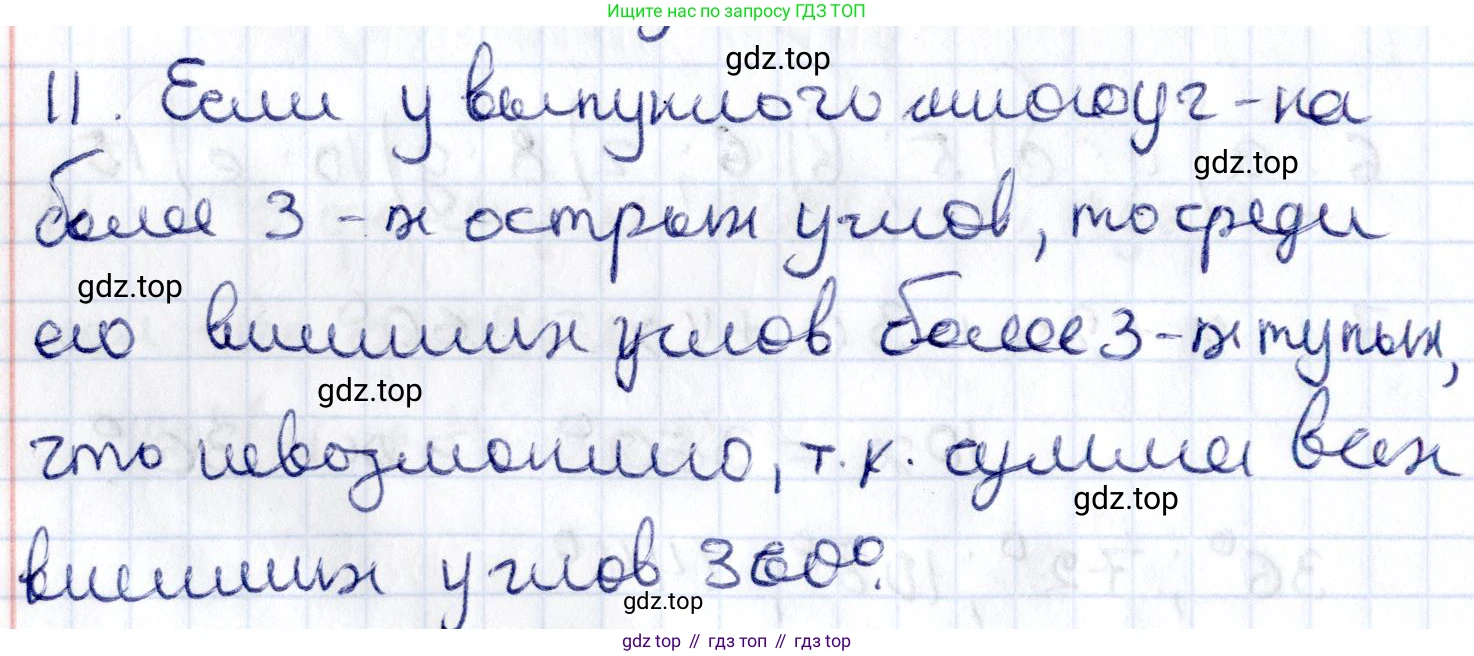 Ищите нас по запросу ГДЗ ТОП
gdz.top
11. Если у выпуклого многоуг-ка
gdz.top
более 3-х острых углов, то среди
gdz.top
его внешних углов более 3-х тупых,
gdz.top
что невозможно, т.к. сумма всех
gdz.top
внешних углов 360°.
gdz.top
gdz top // гдз топ // гдз top